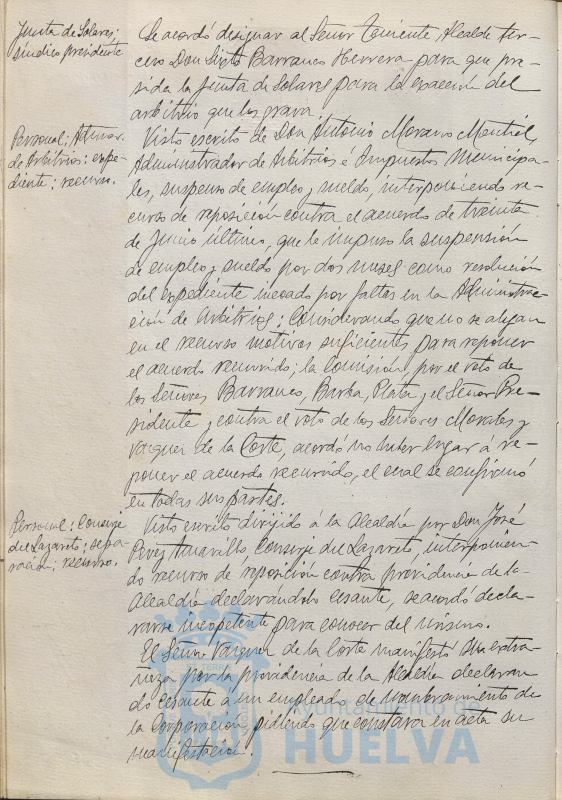 Junta de Solares;
síndico presidente
Se acordó designar al Señor Teniente Alcalde ter-
cero Don Sixto Barranco Herrera para que pre-
sida la Junta de Solares para la exacción del
arbitrio que los grava.
Personal; Admor.
de Arbitrios; expe-
diente; recurso.
Visto escrito de Don Antonio Morano Montiel,
Administrador de Arbitrios é Impuestos Municipa-
les, suspenso de empleo y sueldo, interponiendo re-
curso de reposición contra el acuerdo de treinta
de Junio último, que le impuso la suspensión
de empleo y sueldo por dos meses como resolución
del expediente incoado por faltas en la Administra-
ción de Arbitrios; Considerando que no se alegan
en el recurso motivos suficientes para reponer
el acuerdo recurrido; la Comisión, por el voto de
los Señores Barranco, Barba, Plata y el Señor Pre-
sidente y contra el voto de los Señores Morales y
Vazquez de la Corte, acordó no haber lugar á re-
poner el acuerdo recurrido, el cual se confirmó
en todas sus partes.
Personal; Conserje
del Lazareto; sepa-
ración; recurso.
Visto escrito dirigido á la Alcaldía por Don José
Perez Amarillo, Conserje del Lazareto, interponien-
do recurso de reposición contra providencia de la
Alcaldía declarandolo cesante, se acordó decla-
rarse incopetente para conocer del mismo.
El Señor Vazquez de la Corte manifestó su extra-
ñeza por la providencia de la Alcaldía declaran
do cesante á un empleado de nombramiento de
la Corporación pidiendo que constara en acta su
manifestación.
Ayuntamiento de
HUELVA